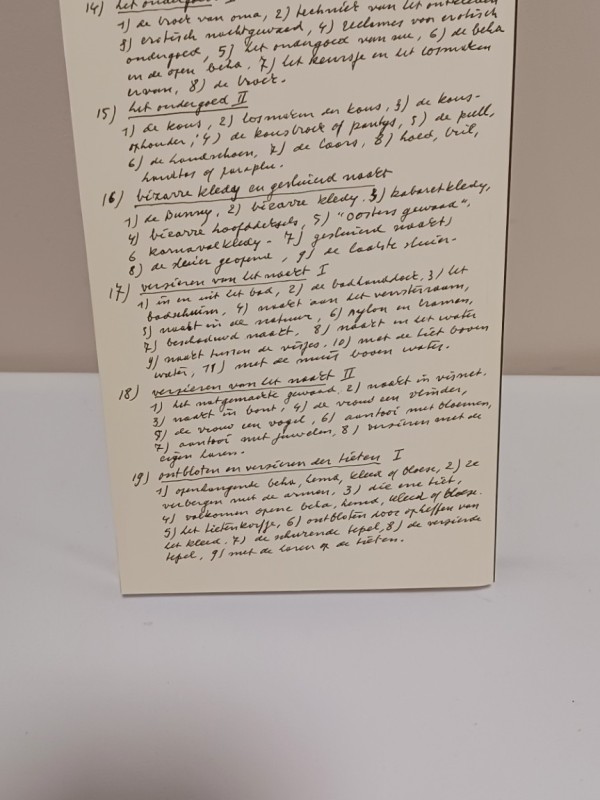 14) het ondergoed I
1) de broek van oma, 2) techniek van het ontkleden
3) erotisch nachtgewaad, 4) reclames voor erotisch
ondergoed, 5) het ondergoed van nu, 6) de beha
en de open beha. 7) het keursje en het losmaken
ervan, 8) de broek.
15) het ondergoed II
1) de kous, 2) losmaken der kous, 3) de kous-
ophouder, 4) de kousbroek of pantys, 5) de pull,
6) de handschoen, 7) de laars, 8) hoed, bril,
handtas of paraplu.
16) bizarre kledij en gesluierd naakt
1) de Bunny, 2) bizarre kledij. 3) kabaretkledij,
4) bizarre hoofddeksels, 5) "oosters gewaad",
6 karnavalkledij - 7) gesluierd naakt,
8) de sluier geopend, 9) de laatste sluier.
17) versieren van het naakt I
1) in en uit het bad, 2) de badhanddoek, 3) het
badschuim, 4) naakt aan het vensterraam,
5) naakt in de natuur, 6) nylon en bramen,
7) beschaduwd naakt, 8) naakt in het water
9) naakt tussen de visjes. 10) met de tiet boven
water, 11) met de muis boven water.
18) versieren van het naakt II
1) het natgemaakte gewaad, 2) naakt in visnet.
3) naakt in bont, 4) de vrouw een vlinder,
5) de vrouw een vogel, 6) aantooi met bloemen,
7) aantooi met juwelen, 8) versieren met de
eigen haren.
19) ontbloten en versieren der tieten I
1) openhangende beha, hemd, kleed of bloese, 2) ze
verbergen met de armen, 3) die ene tiet,
4) volkomen opene beha, hemd, kleed of bloese.
5) het tietenkorfje, 6) ontbloten door opheffen van
het kleed. 7) de schurende tepel, 8) de versierde
tepel, 9) met de haren op de tieten.